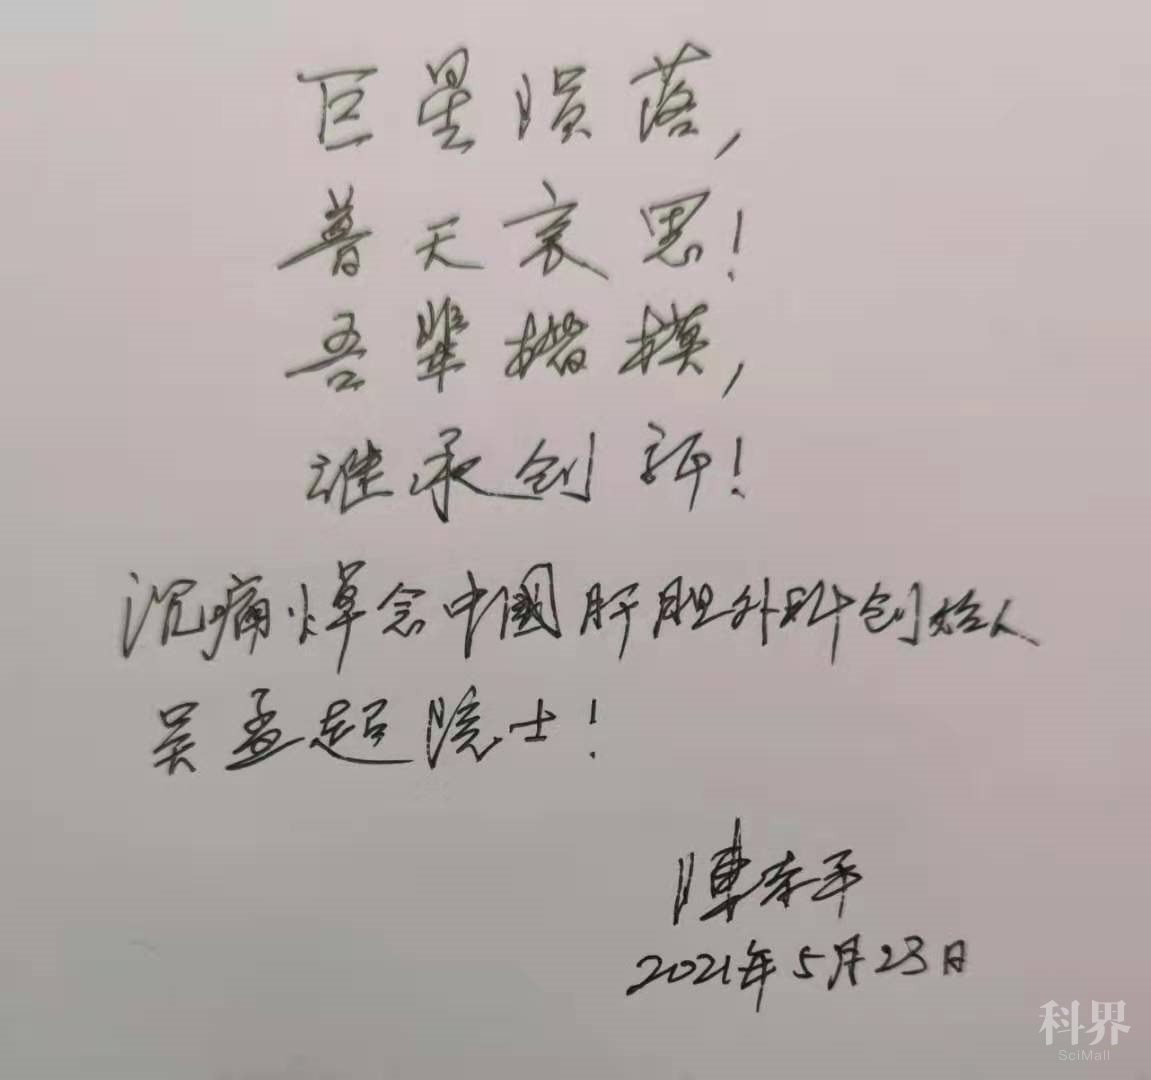 巨星陨落，
普天哀思！
吾辈楷模，
继承创新！
沉痛悼念中國肝胆外科创始人
吴孟超院士！
陳孝平
2021年5月23日
科界
SciMall